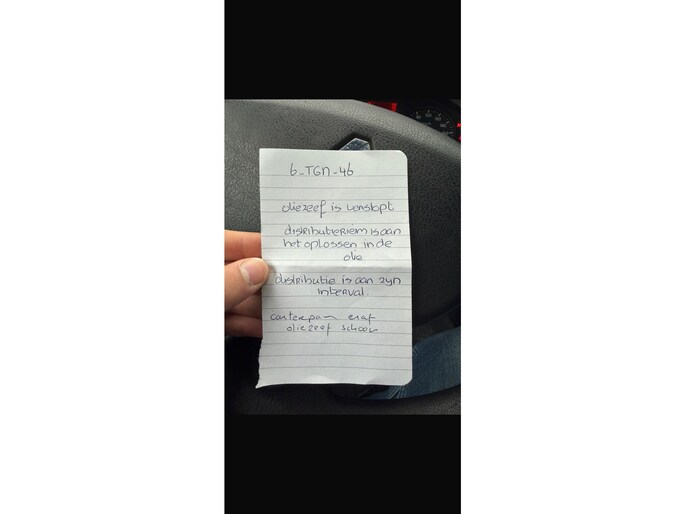 6-TGN-46
oliezeef is verstopt
distributieriem is aan
het oplossen in de
olie
distributie is aan zyn
interval.
carterpan eraf
oliezeef schoon